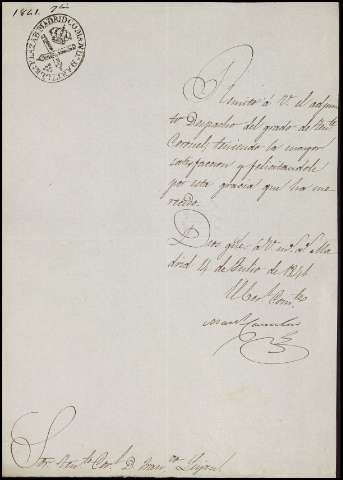 1841.
Remito á V. el adjun
to Despacho del grado de Ten.te
Coronel, teniendo la mayor
satisfaccion y felicitandole
por esta gracia que ha me
recido.
Dios gue. á V. m.s a.s Ma
drid 14 de Julio de 1841
El Cor.l Com.te
Sor. Ten.te Cor.l D. Fran.co Luxan.